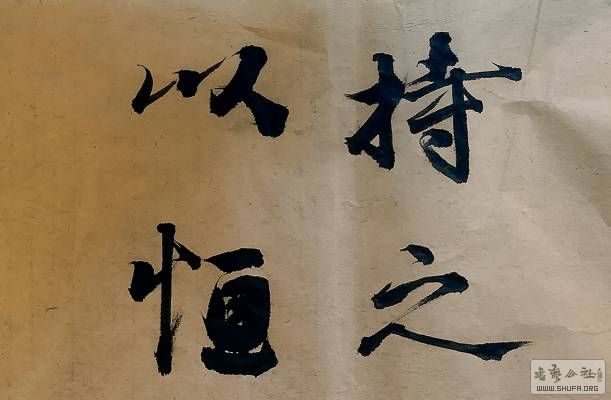 持之
以恒
书艺公社
WWW.SHUFA.ORG